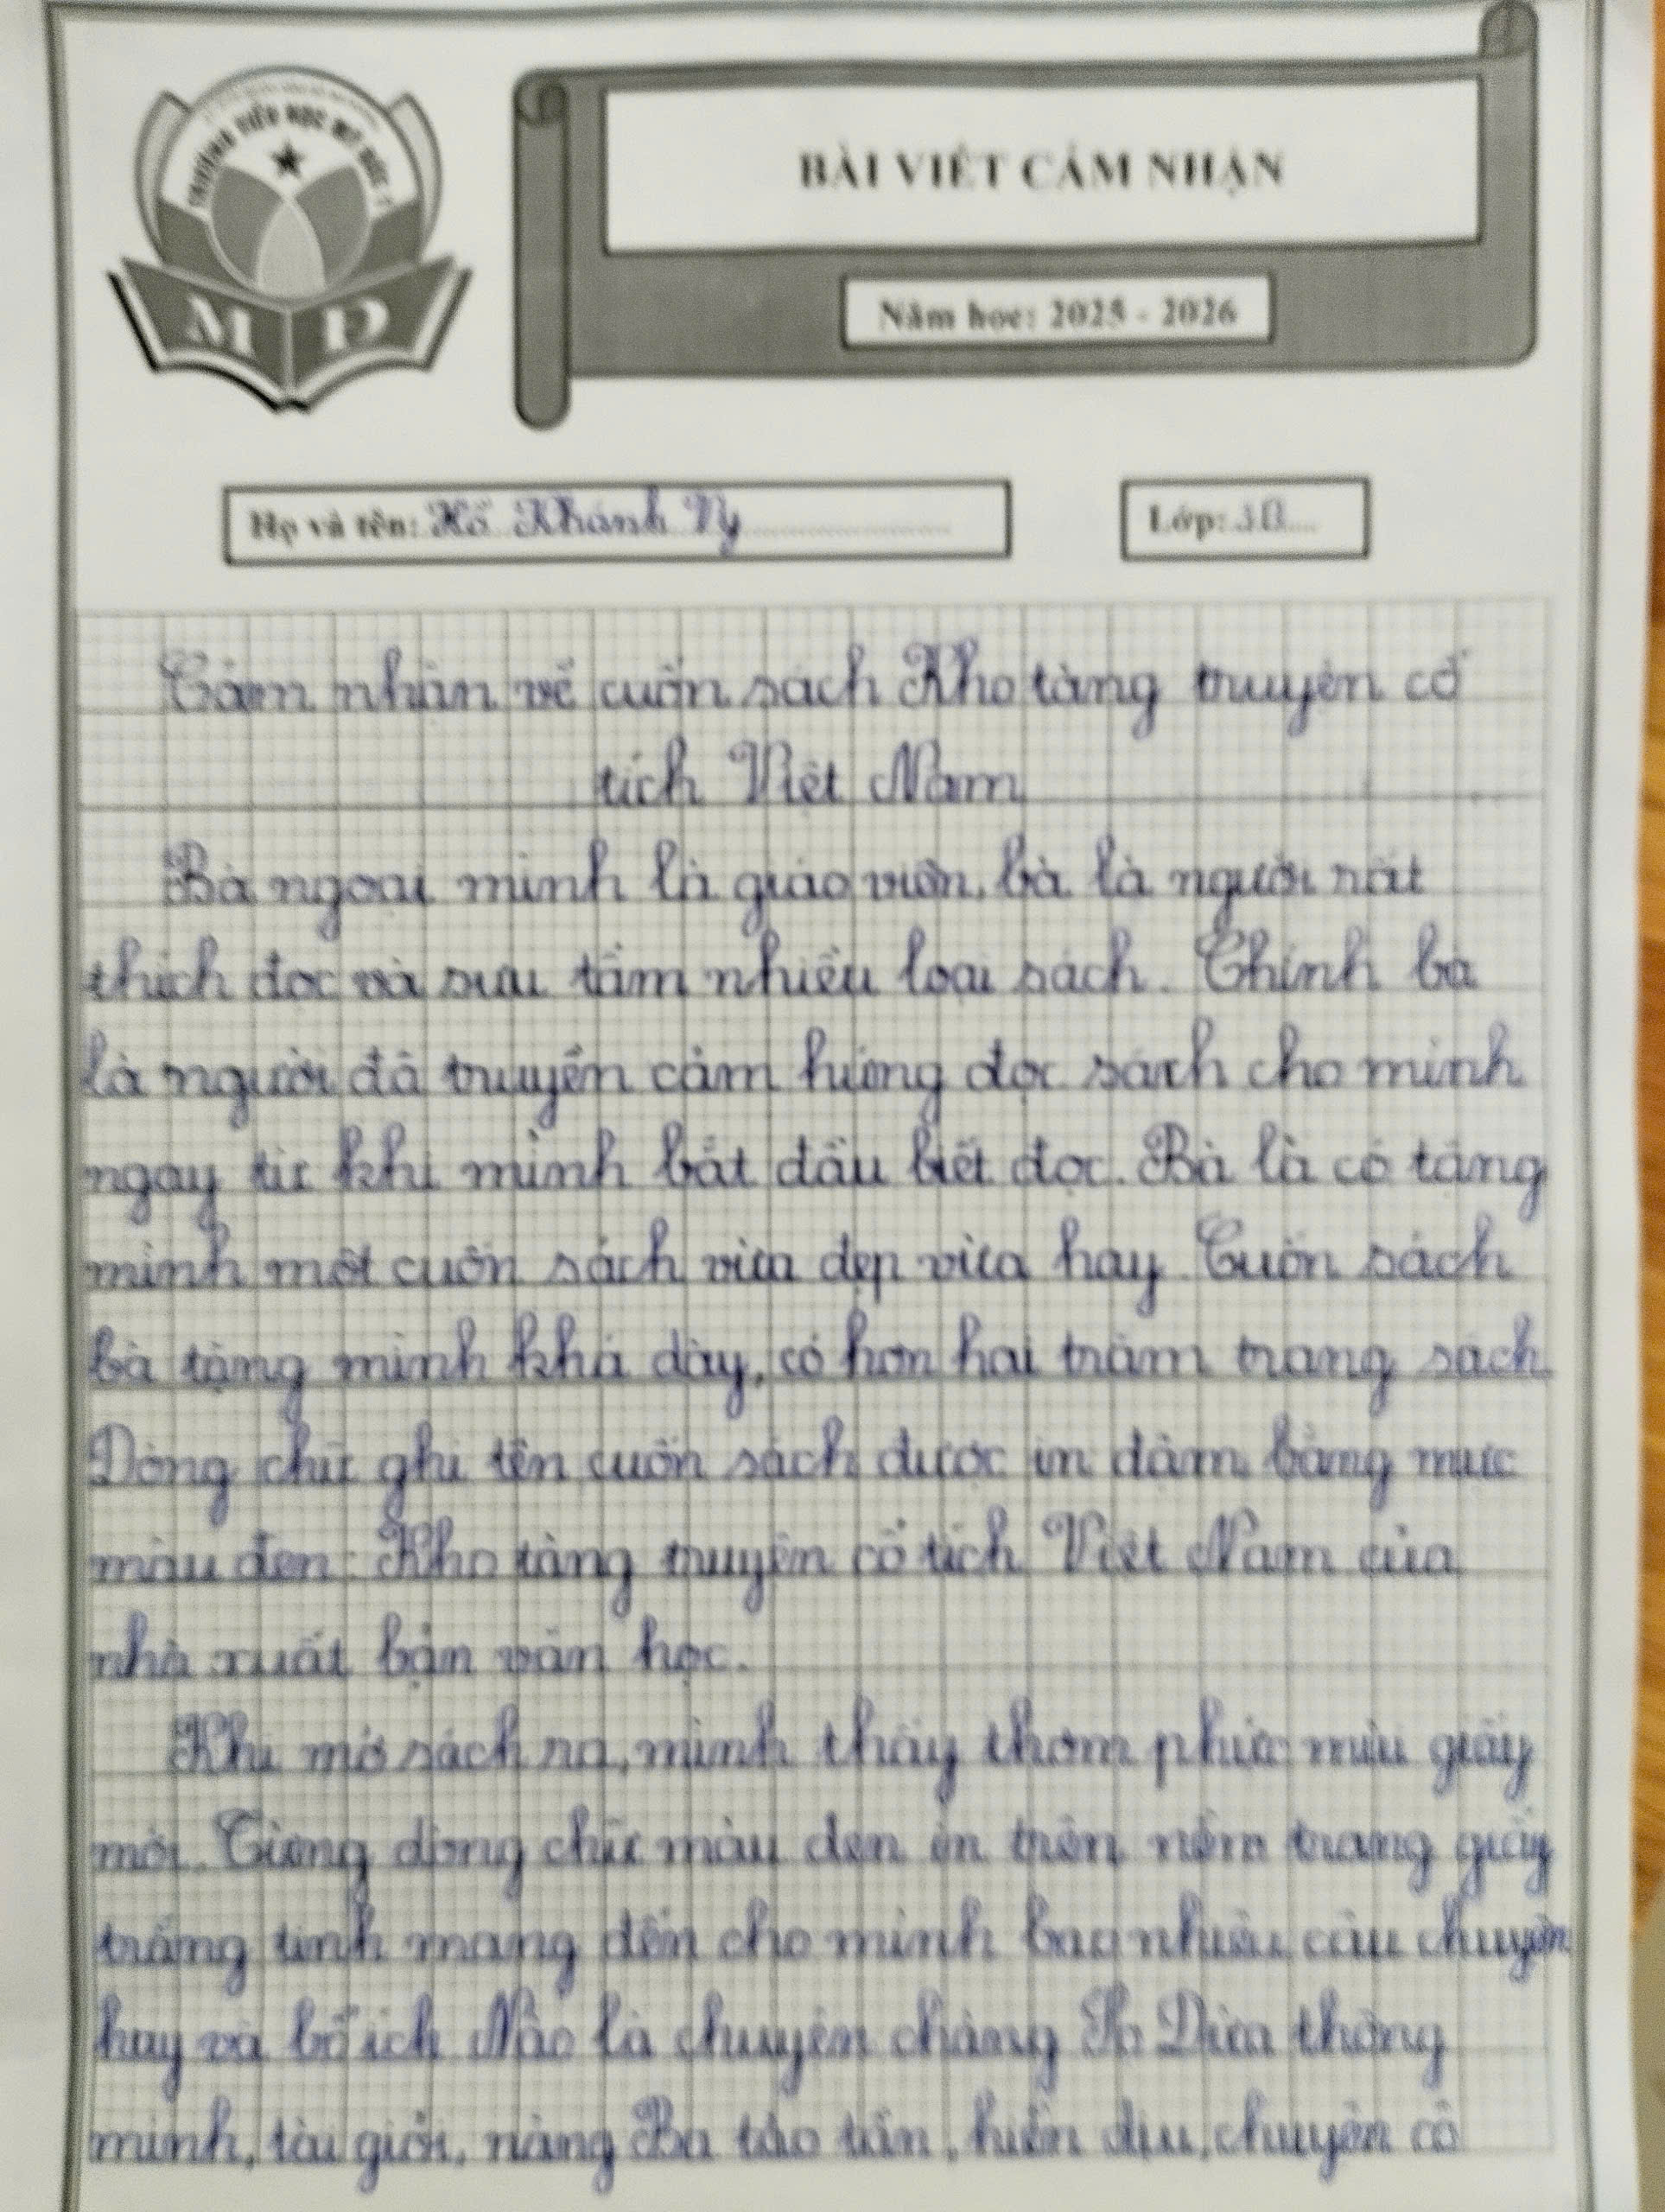 TRƯỜNG TIỂU HỌC MỸ ĐỨC
MĐ
BÀI VIẾT CẢM NHẬN
Năm học: 2025 - 2026
Họ và tên: Hồ Khánh Vy
Lớp:
Cảm nhận về cuốn sách Kho tàng truyện cổ
tích Việt Nam
Bà ngoại mình là giáo viên, bà là người rất
thích đọc và sưu tầm nhiều loại sách. Chính bà
là người đã truyền cảm hứng đọc sách cho mình
ngay từ khi mình bắt đầu biết đọc. Bà là có tặng
mình một cuốn sách vừa đẹp vừa hay. Cuốn sách
bà tặng mình khá dày, có hơn hai trăm trang sách
Dòng chữ ghi tên cuốn sách được in đậm bằng mực
màu đen: Kho tàng truyện cổ tích Việt Nam của
nhà xuất bản văn học.
Khi mở sách ra, mình thấy thơm phức mùi giấy
mới. Từng dòng chữ màu đen in trên nền trang giấy
trắng tinh mang đến cho mình bao nhiêu câu chuyện
hay và bổ ích Nào là chuyện chàng Sọ Dừa thông
minh, tài giỏi, nàng Ba tảo tần, hiền dịu, chuyện cô